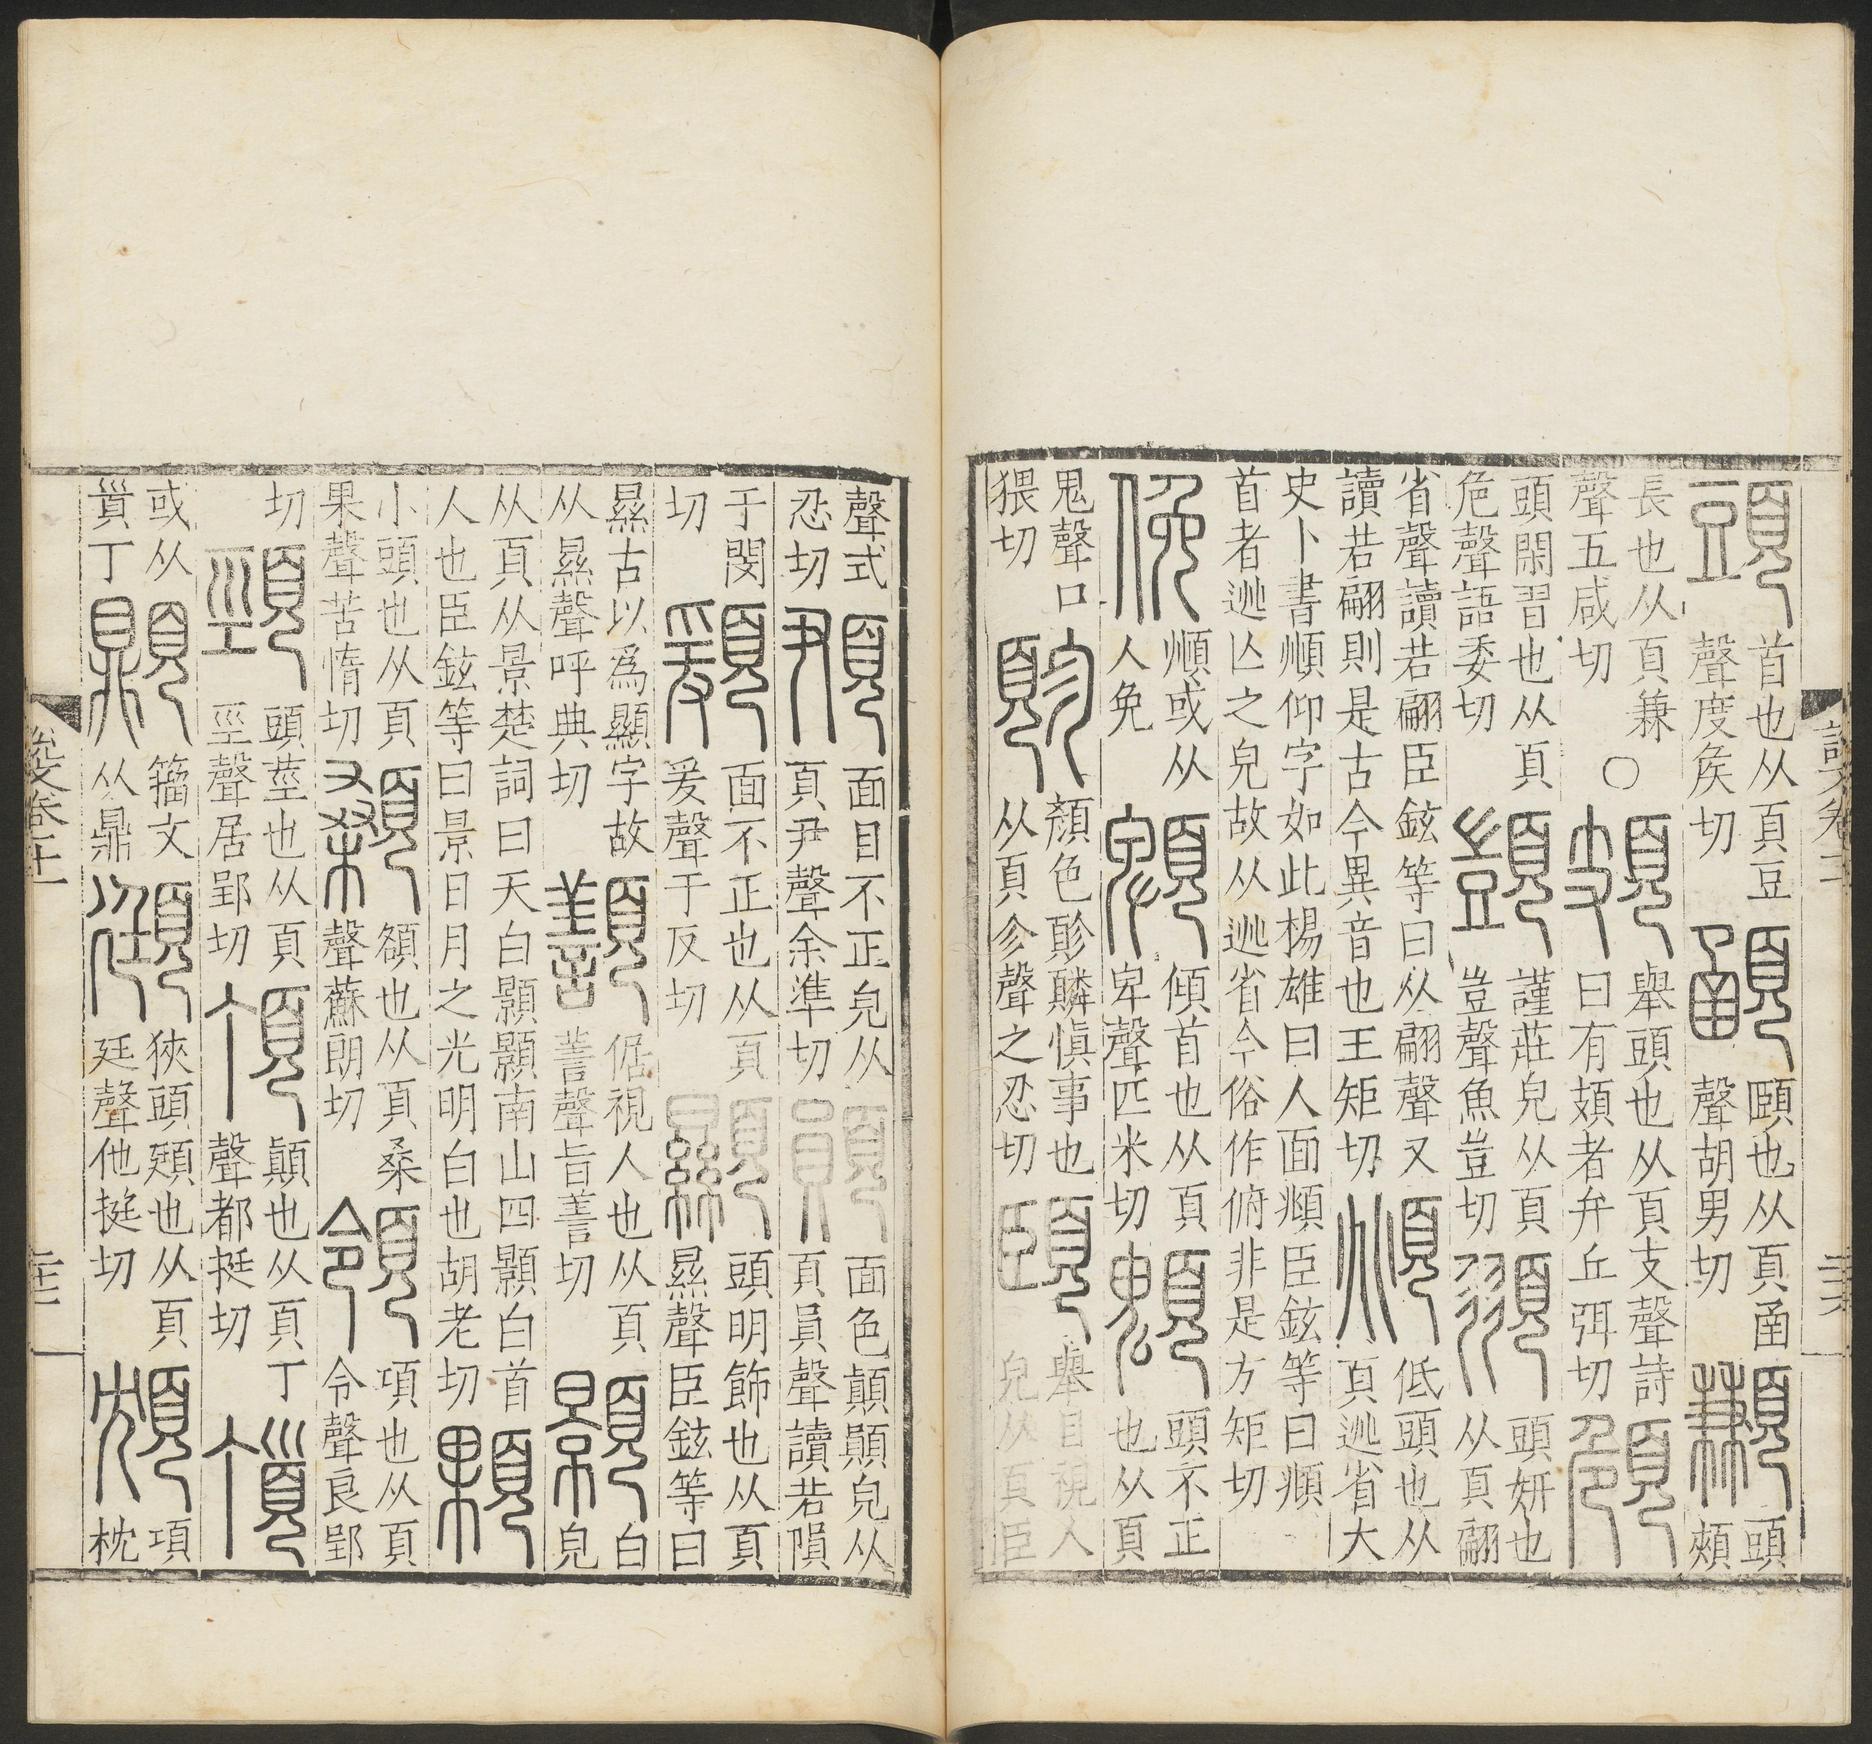 頭 首也从頁豆聲度矦切 顄 頤也从頁圅聲胡男切 䫡 頭頰
長也从頁兼聲五咸切 〇 頍 舉頭也从頁支聲詩曰有頍者弁丘弭切 頠
頭閑習也从頁危聲語委切 顗 謹莊皃从頁豈聲魚豈切 頨 頭妍也从頁翩
省聲讀若翩臣鉉等曰从翩聲又讀若翩則是古今異音也王矩切 頫 低頭也从頁逃省大
史卜書頫仰字如此楊雄曰人面頫臣鉉等曰頫首者逃亡之皃故从逃省今俗作俯非是方矩切
俛 頫或从人免 䫌 傾首也从頁卑聲匹米切 䫥 頭不正也从頁
鬼聲口猥切 顏色慎事也从頁㐱聲之忍切 舉目視人皃从頁臣
聲式忍切 面目不正皃从頁尹聲余準切 䫟 面色顛䫟皃从頁員聲讀若隕
于閔切 面不正也从頁爰聲于反切 顯 頭明飾也从頁㬎聲臣鉉等曰
㬎古以爲顯字故从㬎聲呼典切 倨視人也从頁善聲旨善切 顥 白皃
从頁从景楚詞曰天白顥顥南山四顥白首人也臣鉉等曰景日月之光明白也胡老切 顆
小頭也从頁果聲苦惰切 顙 頟也从頁桑聲蘇朗切 領 項也从頁令聲良郢
切 頸 頭莖也从頁巠聲居郢切 頂 顛也从頁丁聲都挺切
或从丁 籀文从鼎 頲 狹頭頲也从頁廷聲他挺切 項枕
說文卷十一